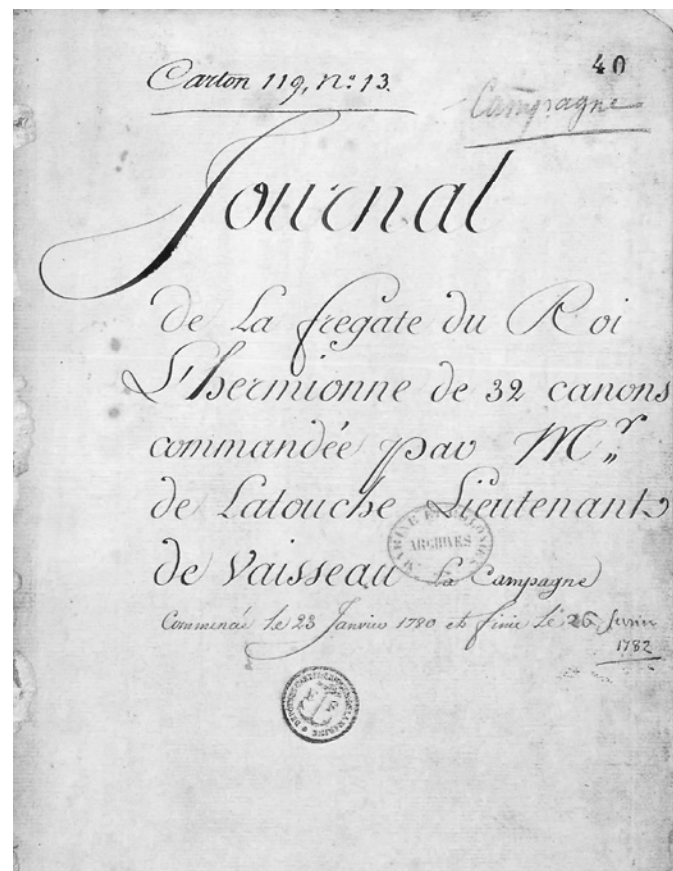 Carton 119, N.º 13.
40
Campagne
Journal
de La fregate du Roi
L'hermionne de 32 canons
commandée par M.r
de Latouche Lieutenant
de Vaisseau La Campagne
Commencé le 23 Janvier 1780 et finie Le 26 fevrier
1782
MARINE ET COLONIES
ARCHIVES